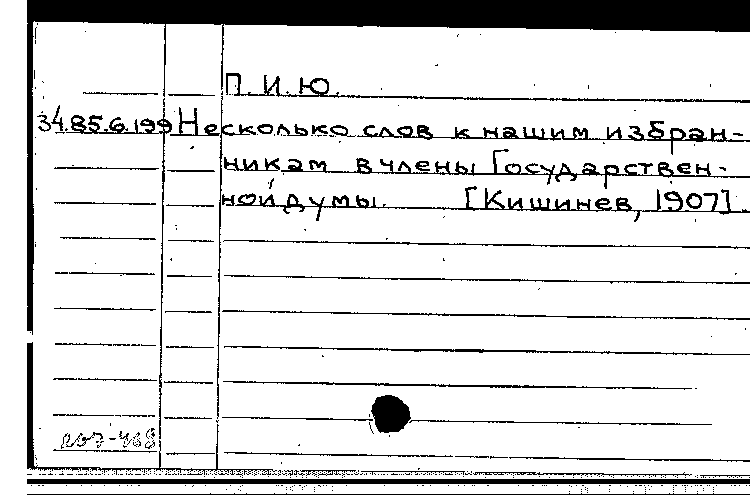 П. И. Ю.
34.85.6.199 Несколько слов к нашим избран-
никам в члены Государствен-
ной думы. [Кишинев, 1907]